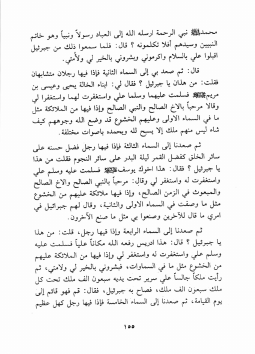 محمد ﷺ نبي الرحمة ارسله الله إلى العباد رسولاً ونبياً وهو خاتم
النبيين وسيدهم أفلا تكلمونه ؟ قال: فلما سمعوا ذلك من جبرئيل
اقبلوا علي بالسلام واكرموني وبشروني بالخير لي ولأمتي.
قال: ثم صعد بي إلى السماء الثانية فإذا فيها رجلان متشابهان
فقلت: من هذان يا جبرئيل ؟ فقال لي: ابناء الخالة يحيى وعيسى بن
مريم ﷺ فسلمت عليهما وسلما علي واستغفرت لهما واستغفرا لي
وقالا مرحباً بالاخ الصالح والنبي الصالح وإذا فيها من الملائكة مثل
ما في السماء الاولى وعليهم الخشوع قد وضع الله وجوههم كيف
شاء ليس منهم ملك إلا يسبح لله ويحمده بأصوات مختلفة.
ثم صعدنا إلى السماء الثالثة فإذا فيها رجل فضل حسنه على
سائر الخلق كفضل القمر ليلة البدر على سائر النجوم فقلت من هذا
يا جبرئيل ؟ فقال: هذا اخوك يوسف ﷺ فسلمت عليه وسلم علي
واستغفرت له واستغفر لي وقال: مرحباً بالنبي الصالح والاخ الصالح
والمبعوث في الزمن الصالح، وإذا فيها ملائكة عليهم من الخشوع
مثل ما وصفت في السماء الاولى والثانية، وقال لهم جبرئيل في
امري ما قال للآخرين وصنعوا بي مثل ما صنع الآخرون.
ثم صعدنا إلى السماء الرابعة وإذا فيها رجل، قلت: من هذا
يا جبرئيل ؟ قال: هذا ادريس رفعه الله مكاناً علياً فسلمت عليه
وسلم علي واستغفرت له واستغفر لي وإذا فيها من الملائكة عليهم
من الخشوع مثل ما في السماوات، فبشروني بالخير لي ولامتي، ثم
رأيت ملكاً جالساً على سرير تحت يديه سبعون الف ملك تحت كل
ملك سبعون الف ملك، فصاح به جبرئيل، فقال: قم فهو قائم إلى
يوم القيامة، ثم صعدنا إلى السماء الخامسة فإذا فيها رجل كهل عظيم
١٥٥